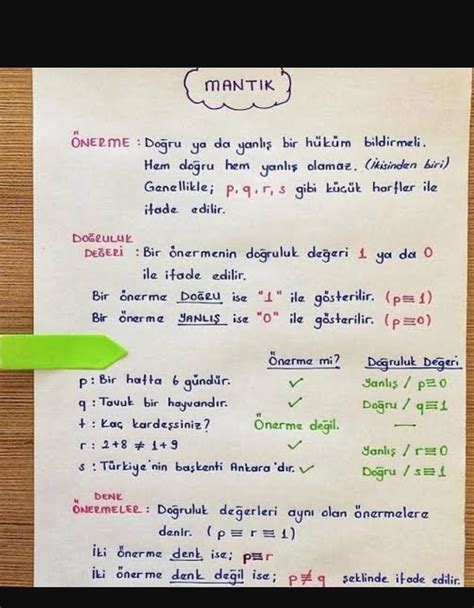 MANTIK
ÖNERME : Doğru ya da yanlış bir hüküm bildirmeli.
Hem doğru hem yanlış olamaz. (İkisinden biri)
Genellikle; p, q, r, s gibi küçük harfler ile
ifade edilir.
DOĞRULUK
DEĞERİ : Bir önermenin doğruluk değeri 1 ya da 0
ile ifade edilir.
Bir önerme DOĞRU ise "1" ile gösterilir. (p≡1)
Bir önerme YANLIŞ ise "0" ile gösterilir. (p≡0)
Önerme mi? Doğruluk Değeri
p : Bir hafta 6 gündür. ✓ Yanlış / p≡0
q : Tavuk bir hayvandır. ✓ Doğru / q≡1
t : Kaç kardeşsiniz? Önerme değil. —
r : 2+8 ≠ 1+9 ✓ Yanlış / r≡0
s : Türkiye'nin başkenti Ankara'dır. ✓ Doğru / s≡1
DENK
ÖNERMELER : Doğruluk değerleri aynı olan önermelere
denir. ( p ≡ r ≡ 1 )
İki önerme denk ise; p≡r
İki önerme denk değil ise; p≢q şeklinde ifade edilir.